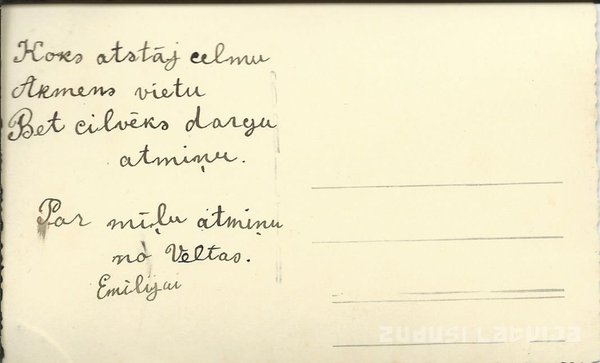 Koks atstāj celmu
Akmens vietu
Bet cilvēks dargu
atmiņu.
Par mīļu atmiņu
no Veltas.
Emīlijai
ZUDUSI LATVIJA